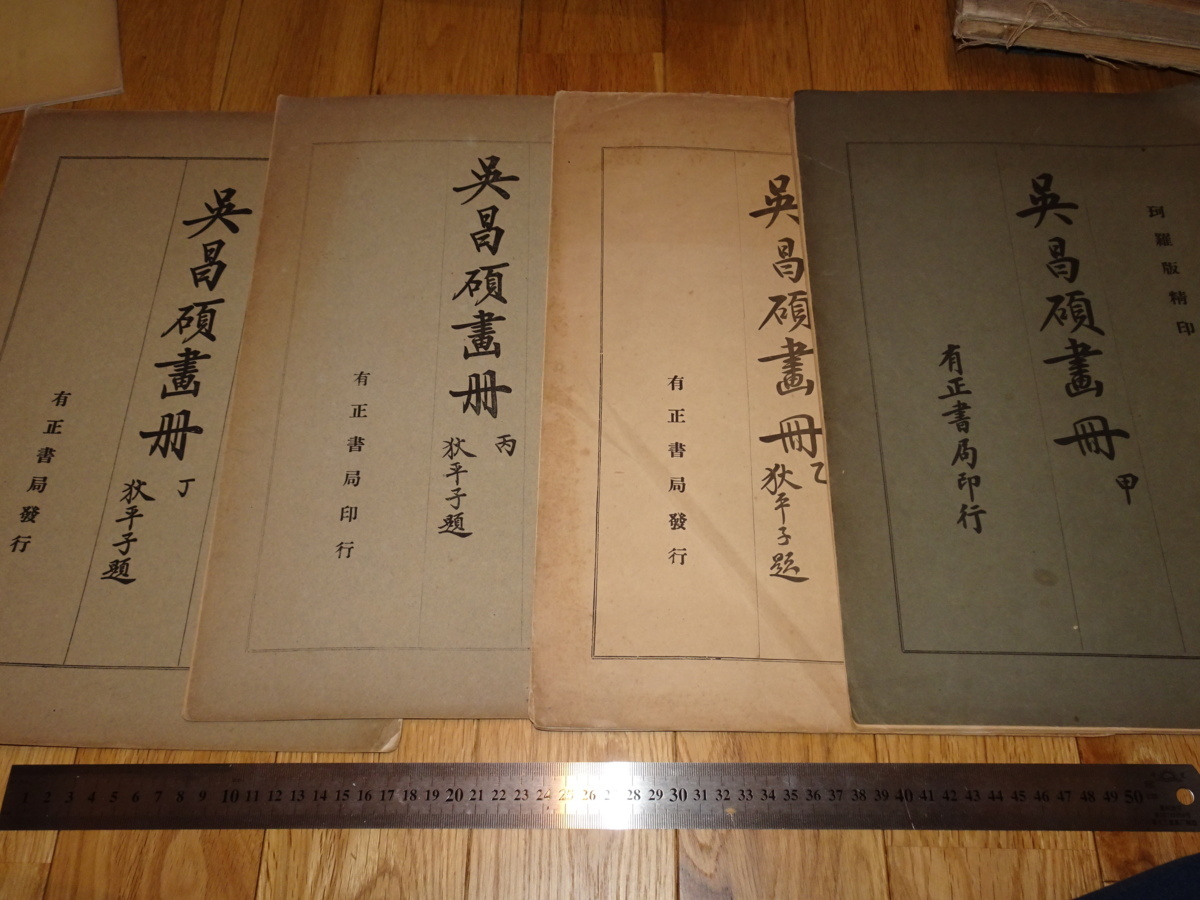 珂羅版精印
吳昌碩畫冊
甲
有正書局印行
吳昌碩畫冊
乙
狄平子題
有正書局發行
吳昌碩畫册
丙
狄平子題
有正書局印行
吳昌碩畫册
丁
狄平子題
有正書局發行
1 2 3 4 5 6 7 8 9 10 11 12 13 14 15 16 17 18 19 20 21 22 23 24 25 26 28 29 30 31 32 33 34 35 36 37 38 39 40 41 42 43 44 45 46 47 48 49 50